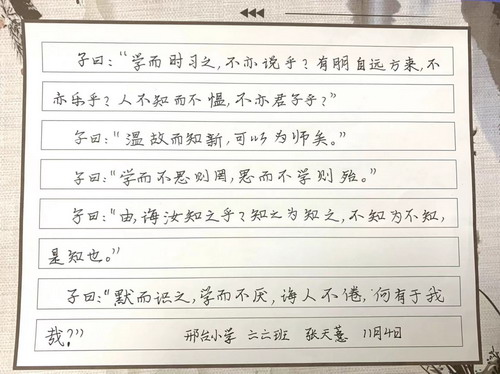 子曰:“学而时习之,不亦说乎?有朋自远方来,不
亦乐乎?人不知而不愠,不亦君子乎?”
子曰:“温故而知新,可以为师矣。”
子曰:“学而不思则罔,思而不学则殆。”
子曰:“由,诲汝知之乎?知之为知之,不知为不知,
是知也。”
子曰:“默而识之,学而不厌,诲人不倦,何有于我
哉?”
邢台小学 二六班 张天薏 11月4日